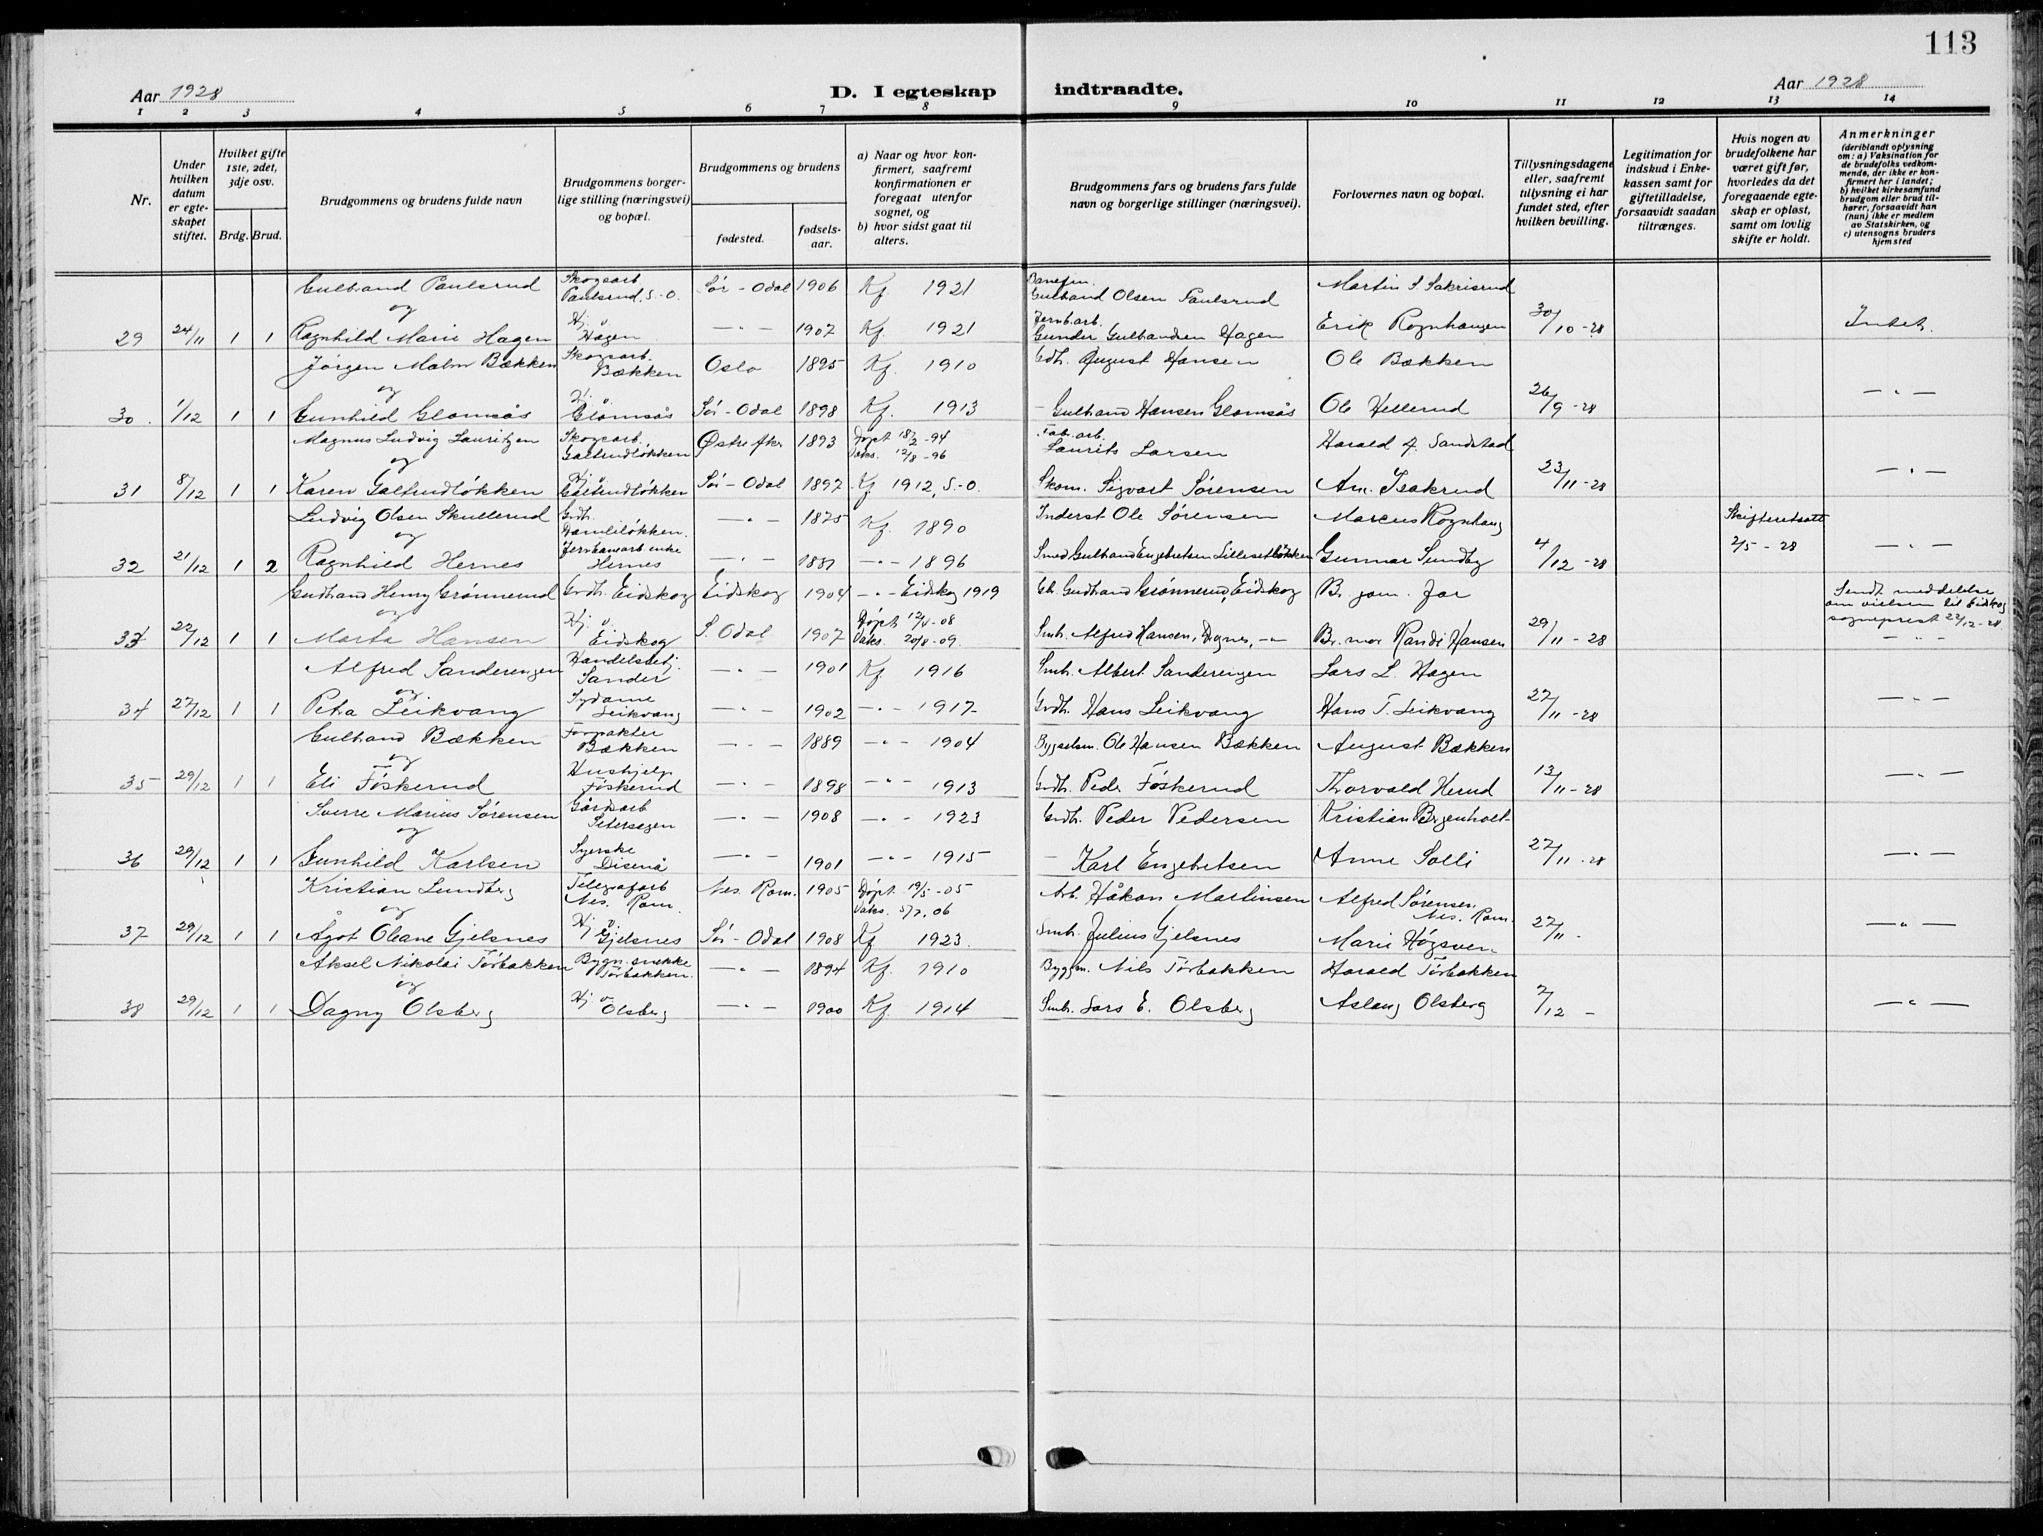 113
Aar 1928 D. I egteskap indtraadte. Aar 1928
1 2 3 4 5 6 7 8 9 10 11 12 13 14
Nr.
Under hvilken datum er egte-skapet stiftet.
Hvilket gifte 1ste, 2det, 3dje osv.
Brdg. Brud.
Brudgommens og brudens fulde navn
Brudgommens borger-lige stilling (næringsvei) og bopæl.
Brudgommens og brudens
fødested.
fødsels-aar.
a) Naar og hvor kon-firmert, saafremt konfirmationen er foregaat utenfor sognet, og
b) hvor sidst gaat til alters.
Brudgommens fars og brudens fars fulde navn og borgerlige stillinger (næringsvei).
Forlovernes navn og bopæl.
Tillysningsdagene eller, saafremt tillysning ei har fundet sted, efter hvilken bevilling.
Legitimation for indskud i Enke-kassen samt for giftetilladelse, forsaavidt saadan tiltrænges.
Hvis nogen av brudefolkene har været gift før, hvorledes da det foregaaende egte-skap er opløst, samt om lovlig skifte er holdt.
Anmerkninger
(deriblandt oplysning om: a) Vaksination for de brudefolks vedkom-mende, der ikke er kon-firmert her i landet; b) hvilket kirkesamfund brudgom eller brud til-hører, forsaavidt han (hun) ikke er medlem av Statskirken, og c) utensogns bruders hjemsted
Gulbrand Paulsrud Skogsarb. Paulsrud, S.-O. Sør-Odal 1906 Kf. 1921 Gulbrand Olsen Paulsrud Martin S Sakrisrud
og
29 24/11 1 1 Ragnhild Marie Hagen Hj. v. Hagen —"— 1907 Kf. 1921 Jernb.arb. Gunder Gulbrandsen Hagen Erik Rognhaugen 30/10-28 Intet.
Jørgen Malm Bækken Skogsarb. Bækken Oslo 1895 Kf. 1910 Gdb. August Hansen Ole Bækken
og
30. 1/12 1 1 Gunhild Glomsås Hj. v. Glomsås Sør-Odal 1898 Kf. 1913 — Gulbrand Hansen Glomsås Ole Hellerud 26/9-28 —"—
Magnus Ludvig Lauritzen Skogsarb. Galtrudløkken Østre Aker 1893 Døpt 18/2-94 Vaks. 12/8-96 Fab.arb. Laurits Larsen Harald A. Sandstad
og
31 8/12 1 1 Karen Galtrudløkken Hj. v. Galtrudløkken Sør-Odal 1897 Kf 1912, S.-O. Skom. Sigvart Sørensen An. Isakrud 23/11-28 —"—
Ludvig Olsen Skullerud Grdb. —"— 1875 Kf. 1890 Inderst Ole Sørensen Marcus Rognhaug Skifteretsatt
og
32 21/12 1 2 Ragnhild Hernes Jernbanearb. enke Hernes —"— 1881 —"— 1896 Smed Gulbrand Engebretsen Lillesetløkken Gunnar Sundby 4/12-28 2/5-28 —"—
Gudbrand Henry Grønnerud Grdb. Eidskog Eidskog 1904 —"— Eidskog 1919 Gb. Gudbrand Grønnerud, Eidskog Br. Sendt meddelelse om vielsen til Eidskog sogneprest 22/12-28
og
33 22/12 1 1 Marta Hansen Hj. v. Eidskog S. Odal 1907 Døpt 12/4-08 Vaks. 20/8-09. Smb. Alfred Hansen, —"— Br. mor Randi Hansen 29/11-28 —"—
Alfred Sanderengen Handelsbetj. Sander —"— 1901 Kf 1916 Smb. Albert Sanderengen Lars L. Hagen
og
34 27/12 1 1 Petra Leikvang Sydame Leikvang —"— 1902 —"— 1917- Grdb. Hans Leikvang Hans T. Leikvang 27/11-28 —"—
Gulbrand Bækken Forpakter Bækken —"— 1889 —"— 1904 Bygselm. Ole Hansen Bækken August Bækken
og
35 29/12 1 1 Eli Føskerud Hushjelp Føskerud —"— 1898 —"— 1913 Grdb. Peder Føskerud Thorvald Herud 13/11-28 —"—
Sverre Marius Sørensen Gårdsarb Setersagen —"— 1908 —"— 1923 Grdb. Peder Pedersen Kristian Bergenholt
og
36 29/12 1 1 Gunhild Karlsen Syerske Disenå —"— 1901 —"— 1915 — Karl Engebretsen Anne Solli 27/11-28 —"—
Kristian Lundberg Telegrafarb Nes. Rom. Nes. Rom. 1905 Døpt 19/5-05 Vaks. 5/7.06 Arb. Håkon Martinsen Alfred Sørensen Nes. Rom.
og
37 29/12 1 1 Ågot Oleane Gjelsnes Hj v Gjelsnes Sør-Odal 1908 Kf 1923. Smb. Julius Gjelsnes Marie 27/11 - —"—
Aksel Nikolai Tørbakken Bygn.snekke Tørbakken. —"— 1894 Kf. 1910 Byggm. Nils Tørbakken Harald Tørbakken
og
38 29/12 1 1 Dagny Olsberg Hj v Olsberg —"— 1900 Kf. 1914 Smb. Lars E. Olsberg Aslaug Olsberg 7/12 - —"—